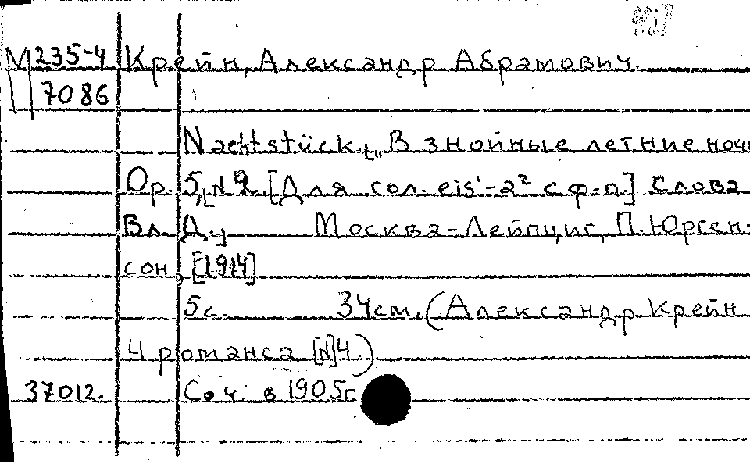 М235-4 Крейн, Александр Абрамович.
7086
Nachtstück. „В знойные летние ночи
Ор. 5, № 4. [Для сол. eis¹-a² с ф-п] Слова
Вл. Д. Москва-Лейпциг, П. Юрген-
сон, [1914]
5с. 34см. (Александр Крейн
4 романса [№]4)
37012. Соч. в 1905г.